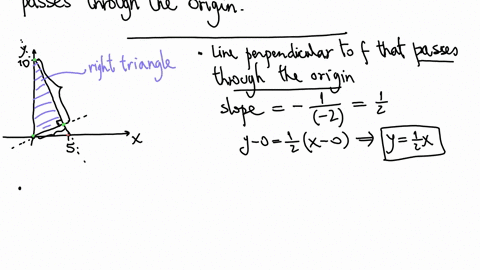 passes through the origin.
y
10
right triangle
5
x
• Line perpendicular to f that passes
through the origin
slope = - 1/(-2) = 1/2
y-0 = 1/2 (x-0) ⇒ y = 1/2 x